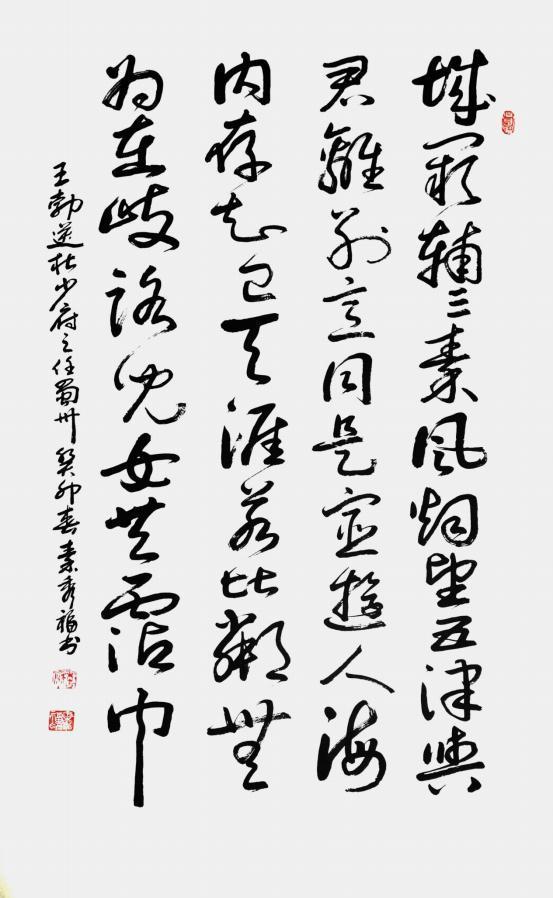 城阙辅三秦风烟望五津與
君離别意同是宦遊人海
内存知己天涯若比鄰無
为在歧路兒女共霑巾
王勃送杜少府之任蜀州 癸卯春秦秀福书